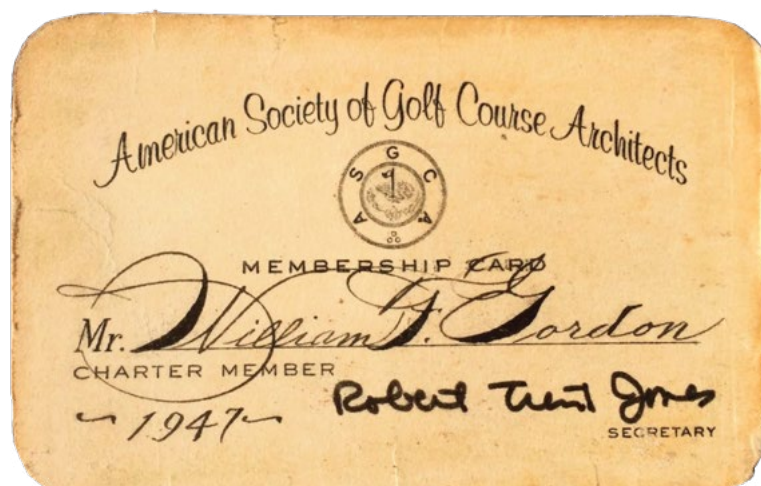 American Society of Golf Course Architects
A S G C A
MEMBERSHIP CARD
Mr. William F. Gordon
CHARTER MEMBER
~1947~
Robert Trent Jones
SECRETARY